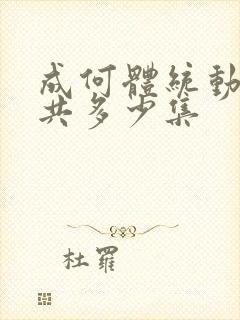 成何體統動
共多少集
杜羅